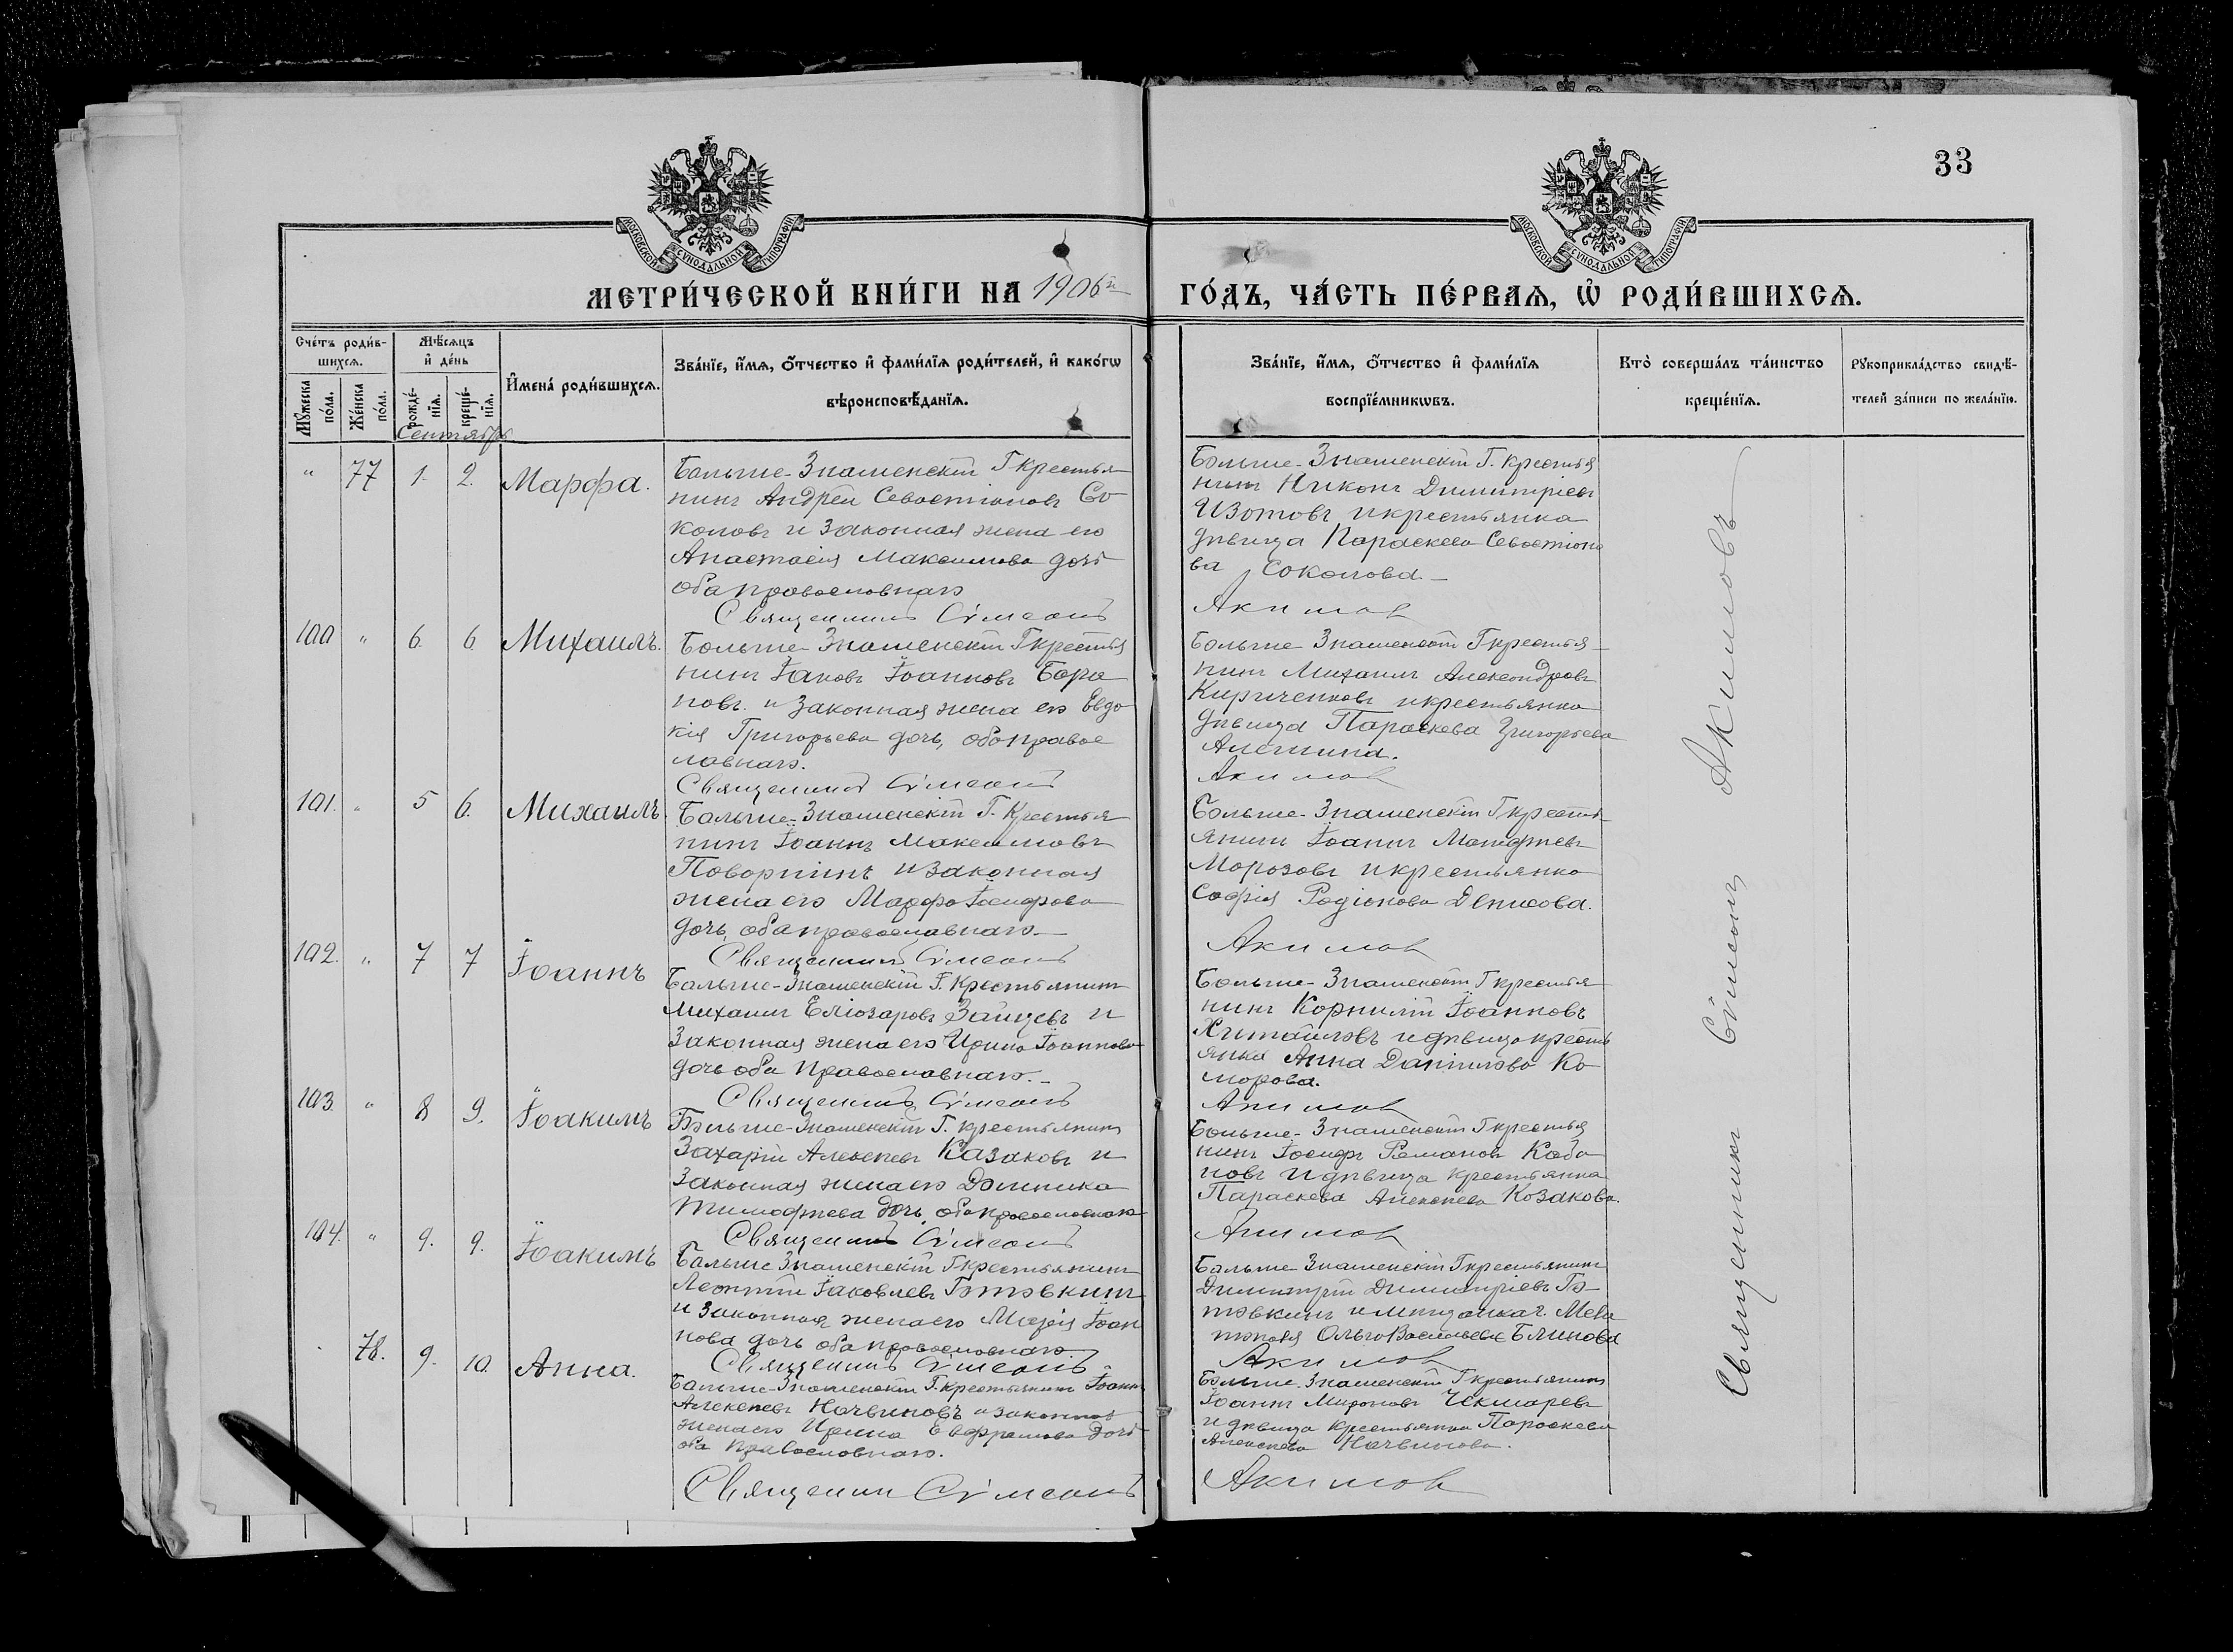 33
МОСКОВСКОЙ СѴНОДАЛЬНОЙ ТИПОГРАФІИ
МОСКОВСКОЙ СѴНОДАЛЬНОЙ ТИПОГРАФІИ
МЕТРИ́ЧЕСКОЙ КНИ́ГИ НА 1906й ГО́ДЪ, ЧА́СТЬ ПЕ́РВАЯ, Ѡ҆ РОДИ́ВШИХСЯ.
Сче́тъ роди́в-
шихся.
Мѣ́сяцъ
и҆ де́нь
Мꙋ́жеска
по́ла.
Же́нска
по́ла.
рожде́-
нїя.
креще́-
нїя.
И҆мена̀ роди́вшихся.
Зва́нїе, и҆́мя, о҆́тчество и҆ фами́лїя роди́телей, и҆ како́гѡ
вѣроисповѣ́данїя.
Зва́нїе, и҆́мя, о҆́тчество и҆ фами́лїя
воспрїе́мникѡвъ.
Кто̀ соверша́лъ та́инство
креще́нїя.
Рꙋкоприкла́дство свидѣ́-
телей за́писи по жела́нїю.
Сентябрь
" 77 1. 2. Марфа.
Больше-Знаменскій Г крестья
нинъ Андрей Севостіоновъ Со
коловъ и законная жена его
Анастасія Максимова дочь
оба православнаго
Священникъ Сѵмеонъ
Больше-Знаменскій Г. крестья
нинъ Никонъ Димитріевъ
Изотовъ и крестьянка
дѣвица Параскева Севостіоно
ва Соколова.
Акимов
100 " 6. 6. Михаилъ.
Больше-Знаменскій Г крестья
нинъ Іаковъ Іоанновъ Бара
новъ. и законная жена его Евдо
кія Григорьева дочь, оба правос
лавнаго.
Священникъ Сѵмеонъ
Больше Знаменскій Г крестья
нинъ Михаилъ Александровъ
Кириченковъ и крестьянка
дѣвица Параскева Григорьева
Алешина.
Акимов
101. " 5 6. Михаилъ.
Больше-Знаменскій Г. Крестья
нинъ Іоаннъ Максимовъ
и законная
жена его Марфа Іосифова
дочь, оба православнаго.
Священникъ Сѵмеонъ
Больше-Знаменскій Г кресть
янинъ Іоаннъ Матфіевъ
Морозовъ и крестьянка
Софія Родіонова Денисова.
Акимов
102. " 7 7 Іоаннъ
Больше-Знаменскій Г. Крестьянинъ
Михаилъ Еліозаровъ Зайцевъ и
законная жена его Ирина Іоаннова
дочь оба православнаго.
Священникъ Сѵмеонъ
Больше-Знаменскій Г крестья
нинъ Корнилій Іоанновъ
и дѣвица кресть
янка Анна Даніилова Ко
марова.
Акимов
103. " 8 9. Іоакимъ
Больше-Знаменскій Г. крестьянинъ
Захарій Алексѣевъ Казаковъ и
Законная жена его Домника
Тимофѣева дочь, оба православнаго
Священникъ Сѵмеонъ
Больше-Знаменскій Г крестья
нинъ Іосифъ Романовъ Каба
новъ и дѣвица крестьянка
Параскева Алексѣева Козакова.
Акимов
104. " 9. 9. Іоакимъ
Больше Знаменскій Г крестьянинъ
Леонтій Іаковлевъ
и законная жена его Марія Іоан
нова дочь оба православнаго.
Священникъ Сѵмеонъ
Больше Знаменскій Г крестьянинъ
Димитрій Димитріевъ
Ольга Васильева Блинова
Акимов
78. 9. 10. Анна.
Больше-Знаменскій Г. крестьянинъ Іоаннъ
Алексѣевъ Начвиновъ и законная
жена его Ирина Евфремова дочь
оба православнаго.
Священник Сѵмеонъ
Больше-Знаменскій Г крестьянинъ
Іоаннъ Мироновъ Чекмаревъ
и дѣвица крестьянка Параскева
Алексѣева Начвинова.
Акимов
Священникъ Сѵмеонъ Акимовъ